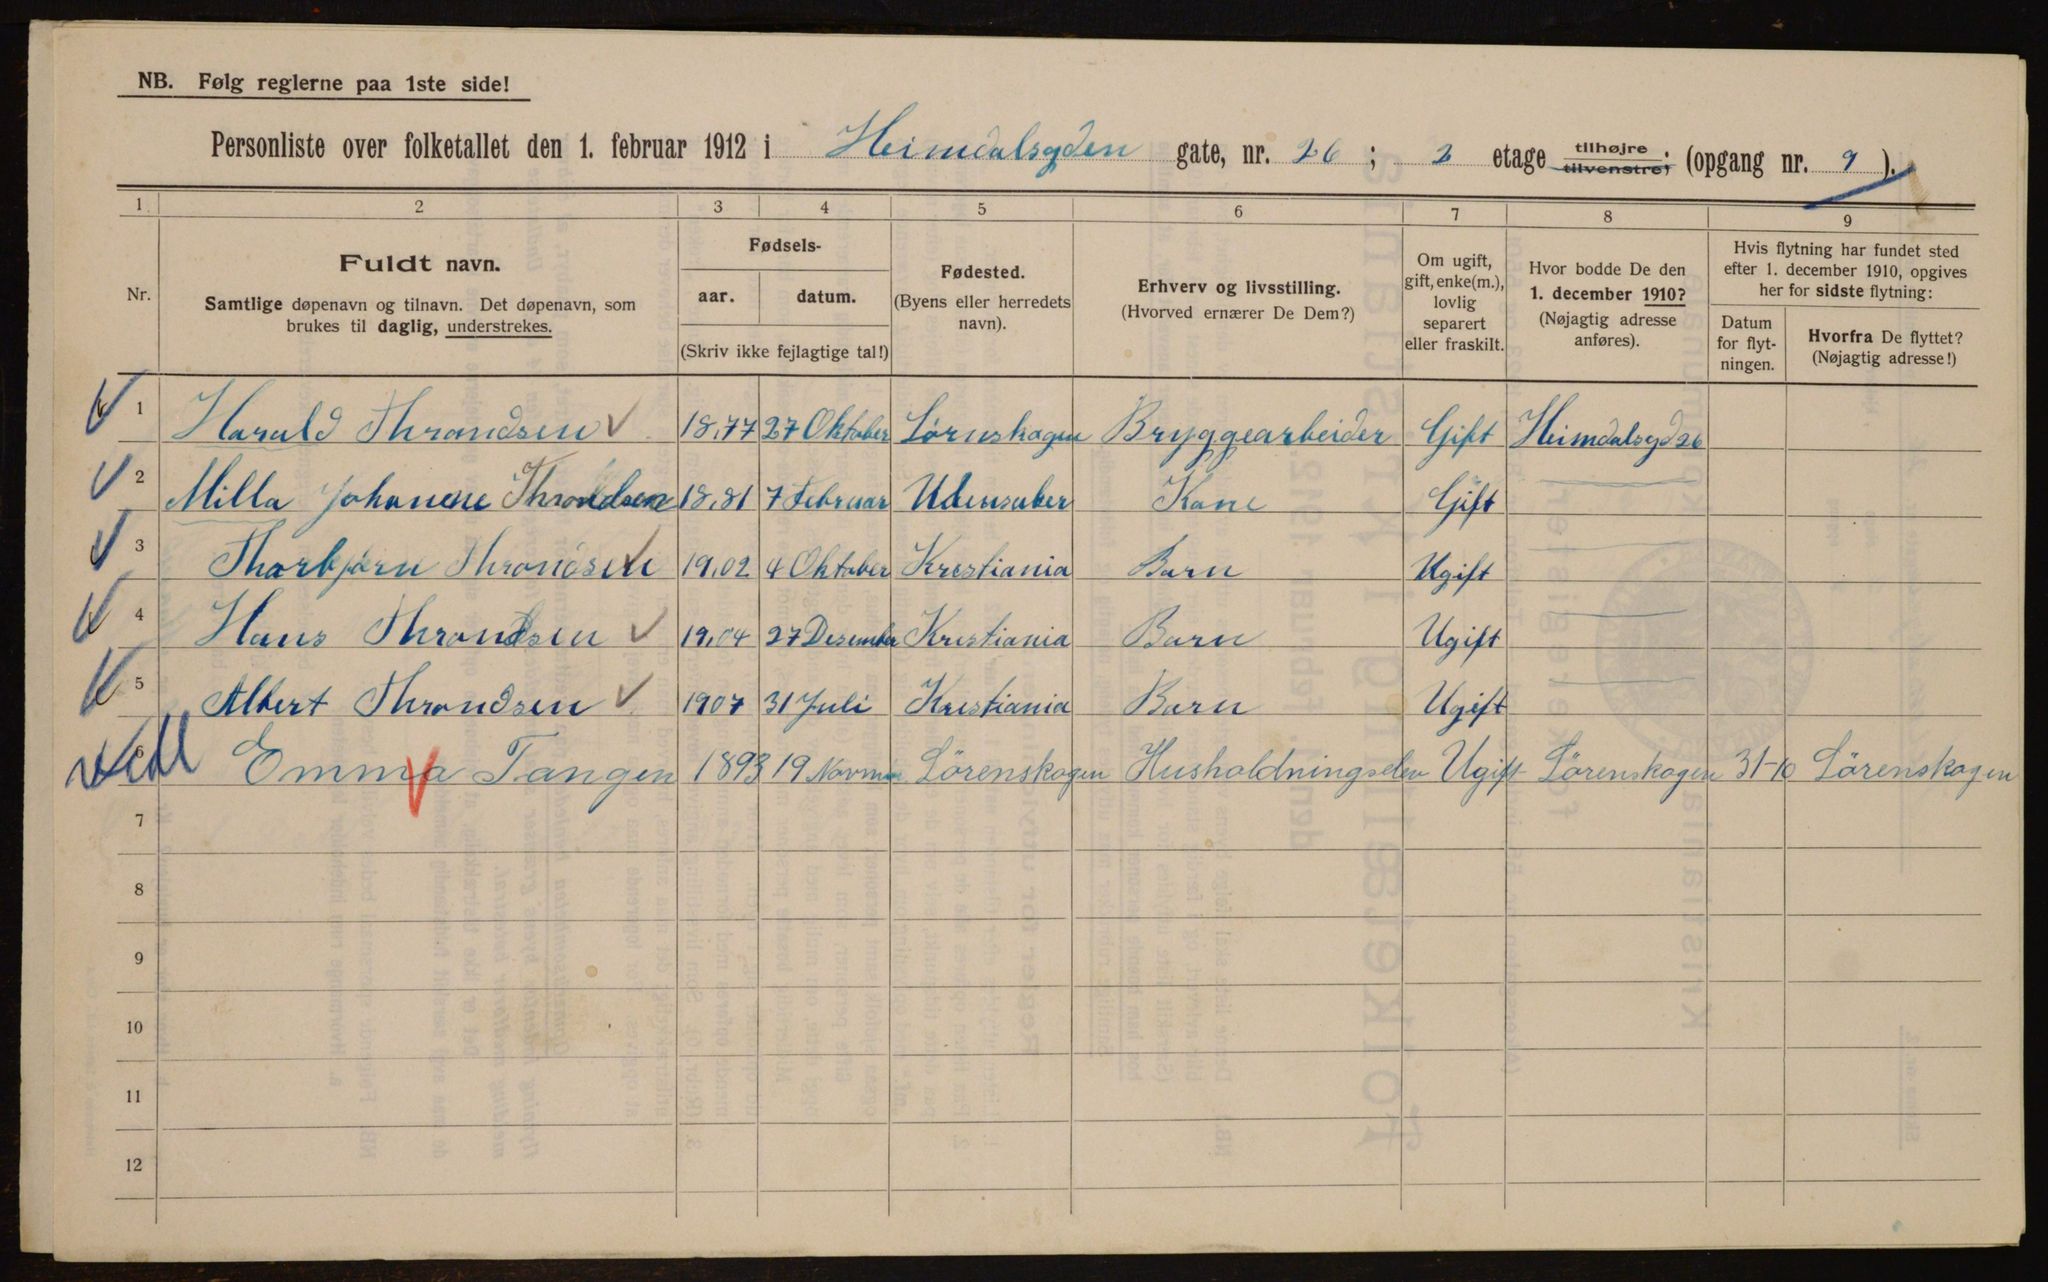 NB. Følg reglerne paa 1ste side!
Personliste over folketallet den 1. februar 1912 i Heimdalsgden gate, nr. 26 ; 2 etage tilhøjre tilvenstre; (opgang nr. 9 ).
1 2 3 4 5 6 7 8 9
Nr.
Fuldt navn.
Samtlige døpenavn og tilnavn. Det døpenavn, som
brukes til daglig, understrekes.
Fødsels-
aar. datum.
(Skriv ikke fejlagtige tal!)
Fødested.
(Byens eller herredets
navn).
Erhverv og livsstilling.
(Hvorved ernærer De Dem?)
Om ugift,
gift, enke(m.),
lovlig
separert
eller fraskilt.
Hvor bodde De den
1. december 1910?
(Nøjagtig adresse
anføres).
Hvis flytning har fundet sted
efter 1. december 1910, opgives
her for sidste flytning:
Datum
for flyt-
ningen.
Hvorfra De flyttet?
(Nøjagtig adresse!)
1 Harald Throndsen 18,77 27 Oktober Lørnskogen Bryggearbeider Gift Heimdalsgd 26
2 Milla Johanene Throndsen 18,81 7 Februar Udensuber Kone Gift
3 Thorbjørn Throndsen 19,02 4 Oktober Kristiania Barn Ugift
4 Hans Throndsen 19,04 27 Desember Kristiania Barn Ugift
5 Albert Throndsen 1907 31 Juli Kristiania Barn Ugift
6 Emma Tangen 1893 19 Lörenskogen Husholdningselev Ugift Lörenskogen 31-10 Lörenskogen
7
8
9
10
11
12